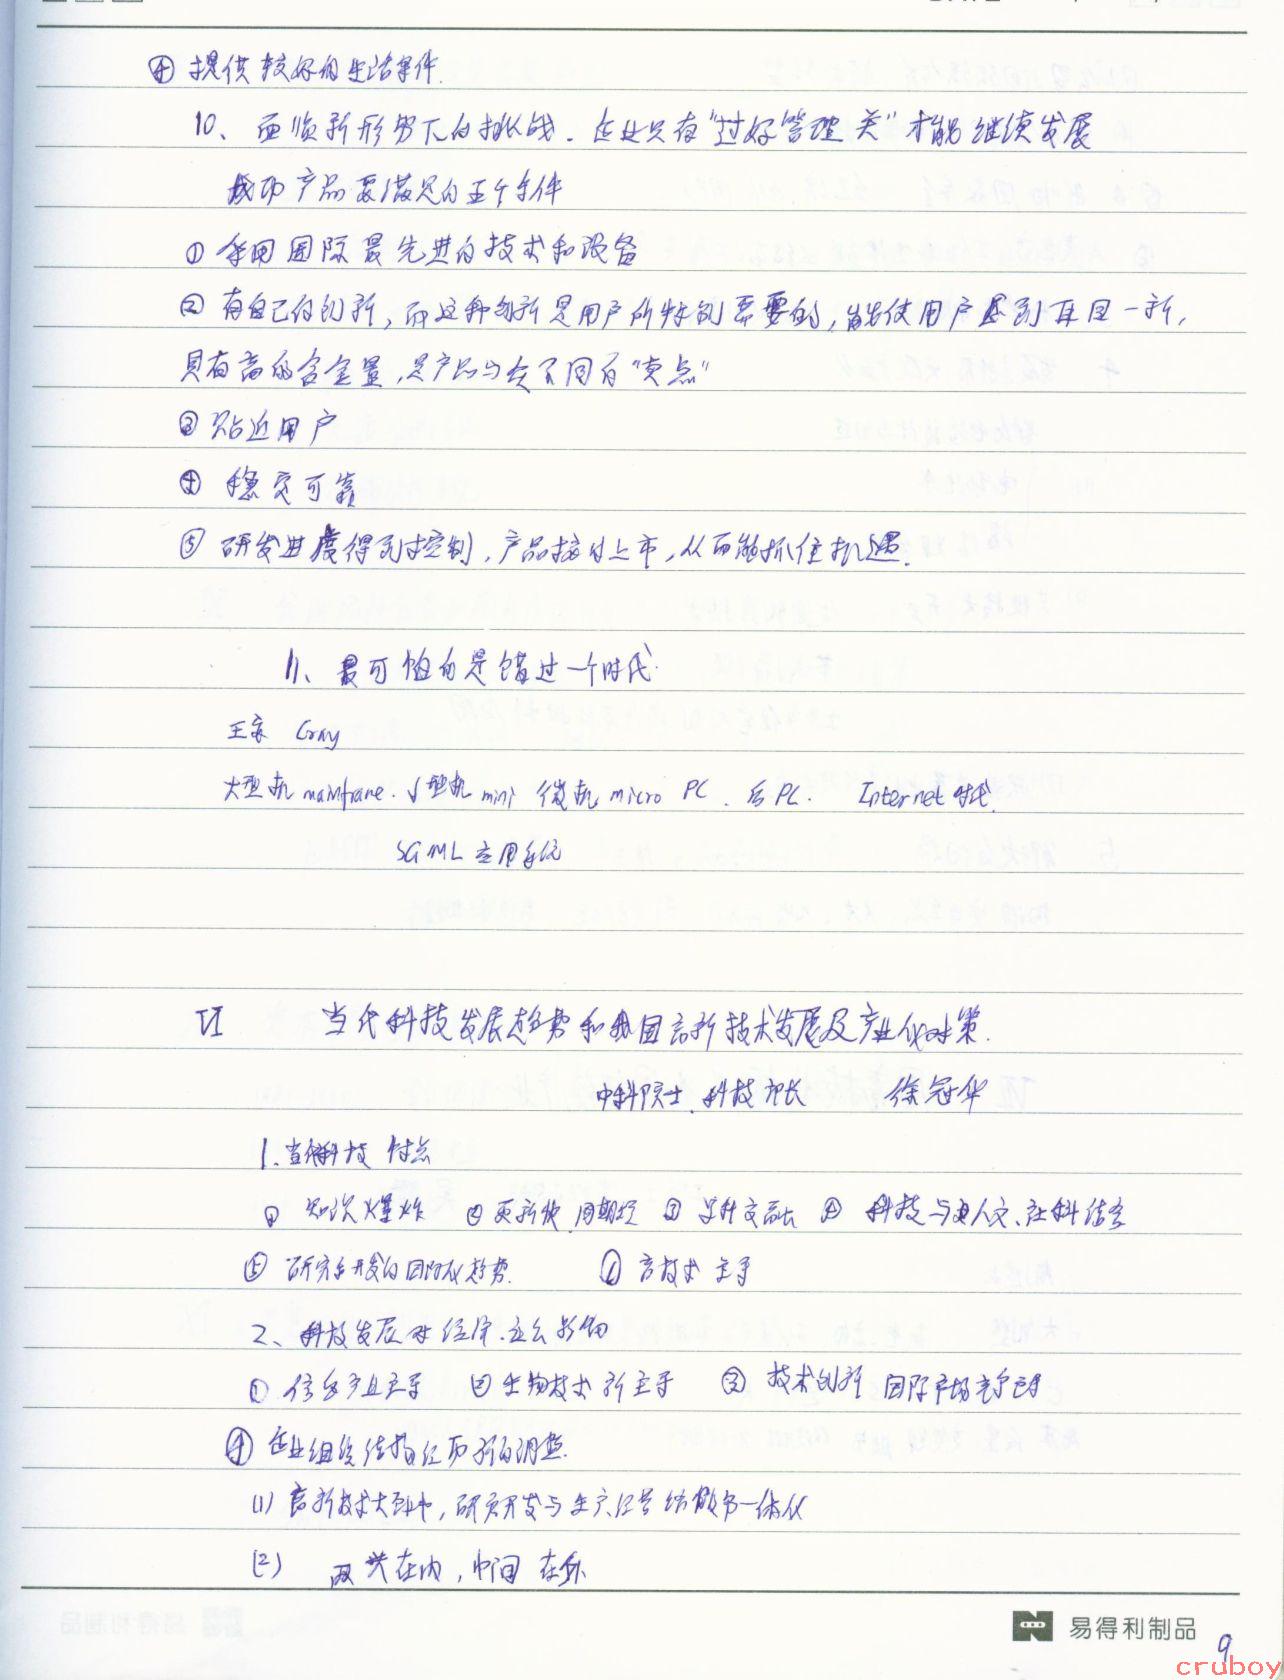 ④ 提供较好的生活条件.
10、面临新形势下的挑战. 企业只有"过好管理关"才能继续发展
成功产品要满足的五个条件
① 采用国际最先进的技术和设备
② 有自己的创新, 而这种创新是用户所特别需要的, 能使用户感到耳目一新,
具有高的含金量, 是产品与众不同的"卖点"
③ 贴近用户
④ 稳定可靠
⑤ 研发进度得到控制, 产品按时上市, 从而能抓住机遇.
11、最可怕的是错过一个时代.
王安 Cray
大型机 mainframe. 小型机 mini 微机 micro PC. 后PC. Internet时代.
SGML 应用系统
VI 当代科技发展趋势和我国高新技术发展及产业化对策.
中科院士、科技部长 徐冠华
1. 当代科技 特点
① 知识爆炸 ② 更新快 周期短 ③ 学科交融 ④ 科技与人文、社科结合
⑤ 研究与开发的国际化趋势. ⑥ 高技术 主导
2、科技发展对经济.社会影响
① 信息产业主导 ② 生物技术 新主导 ③ 技术创新 国际市场竞争
④ 企业组织结构经历新的调整.
(1) 高新技术大型, 研究开发与生产经营 一体化
(2) 两头在内, 中间在外
易得利制品
9
cruboy